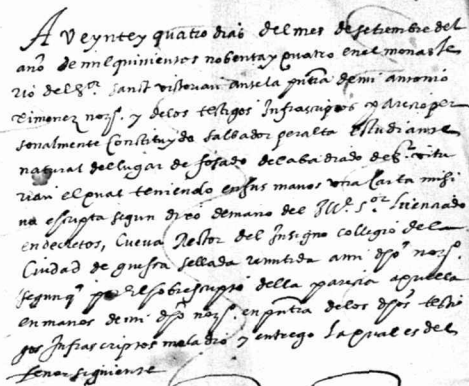 A veyntey quatro dias del mes de setiembre del
año de mil quinientos nobenta y quatro en el monaste
rio del Sr. sanct victorian ansela pntia de mi antonio
Ximenez nots. y de los testigos Infrascriptos parescio per
sonalmente Constituydo salbador peralta estudiante
natural del lugar de fosado del abadiado de St. vitu
rian el qual teniendo en sus manos una Carta misi
va escripta segun dixo de mano del Ille. Sor. licenciado
en decretos, Cueva Rector del Insigne collegio de la
Ciudad de guesca sellada remitida a mi dho nots.
segun q por el sobrescripto della parescia aquella
en manos de mi dho nots. en pntia de los dhos testi
gos Infrascriptos me la dio y entrego la qual es del
tenor siguiente